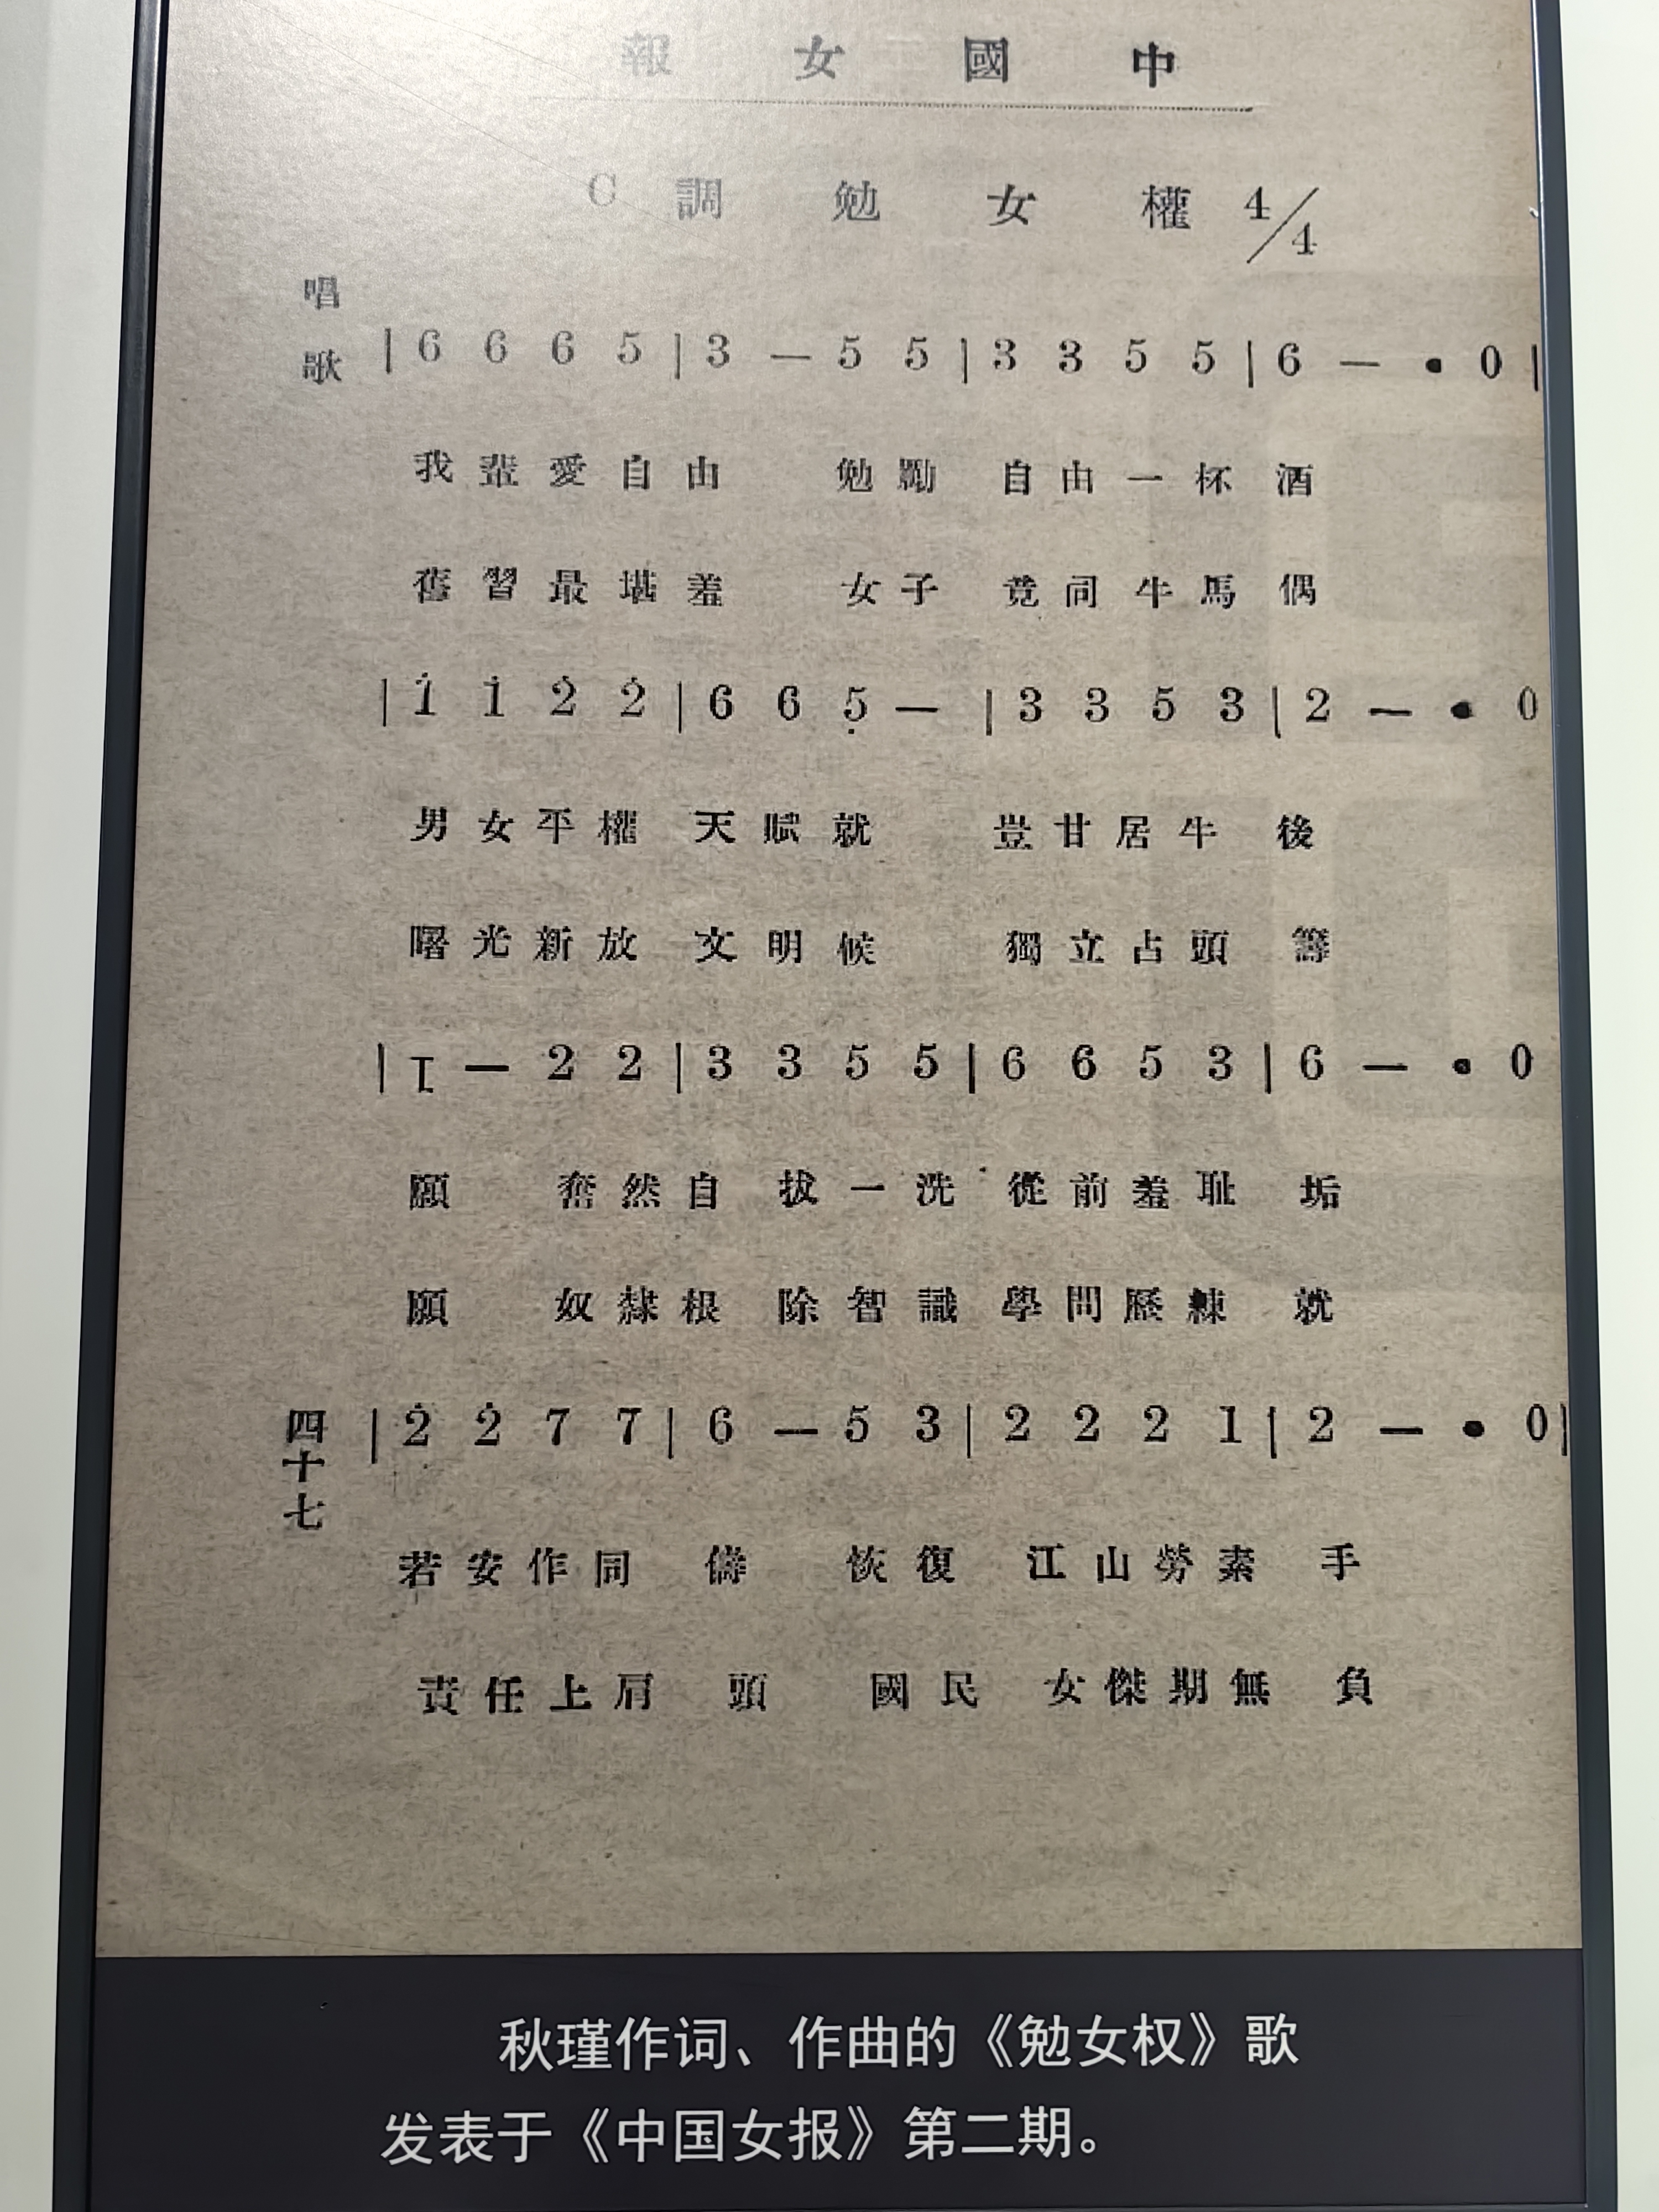 中國女報
C 調 勉 女 權 4/4
唱歌
| 6 6 6 5 | 3 — 5 5 | 3 3 5 5 | 6 — • 0 |
我輩愛自由 勉勵自由一杯酒
舊習最堪羞 女子竟同牛馬偶
| 1̇ 1̇ 2̇ 2̇ | 6 6 5̣ — | 3 3 5 3 | 2 — • 0
男女平權天賦就 豈甘居牛後
曙光新放文明候 獨立占頭籌
| 1 — 2 2 | 3 3 5 5 | 6 6 5 3 | 6 — • 0
願 奮然自拔一洗從前羞耻垢
願 奴隸根除智識學問歷練就
四十七
| 2̇ 2̇ 7 7 | 6 — 5 3 | 2 2 2 1 | 2 — • 0 |
若安作同儔 恢復江山勞素手
責任上肩頭 國民女傑期無負
秋瑾作词、作曲的《勉女权》歌
发表于《中国女报》第二期。